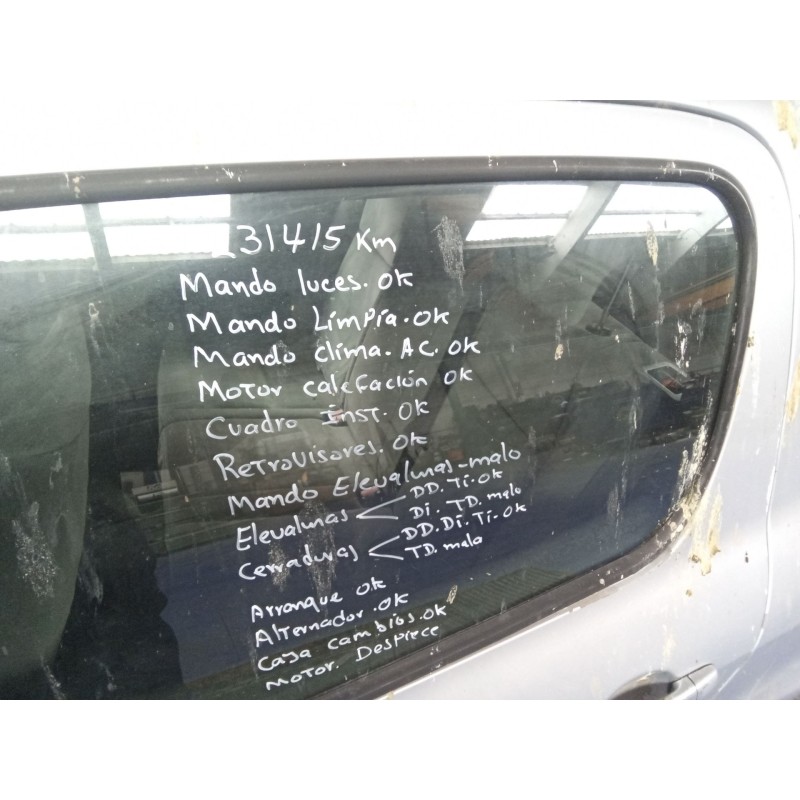 231415 Km
Mando luces. OK
Mando Limpia. OK
Mando clima. AC. OK
Motor calefación OK
Cuadro inst. OK
Retrovisores. OK
Mando Elevalunas - malo
Elevalunas DD. Ti. OK
Di. TD. malo
Cerraduras DD. Di. Ti. OK
TD. malo
Arranque OK
Alternador. OK
Caja cambios. OK
Motor. Despiece